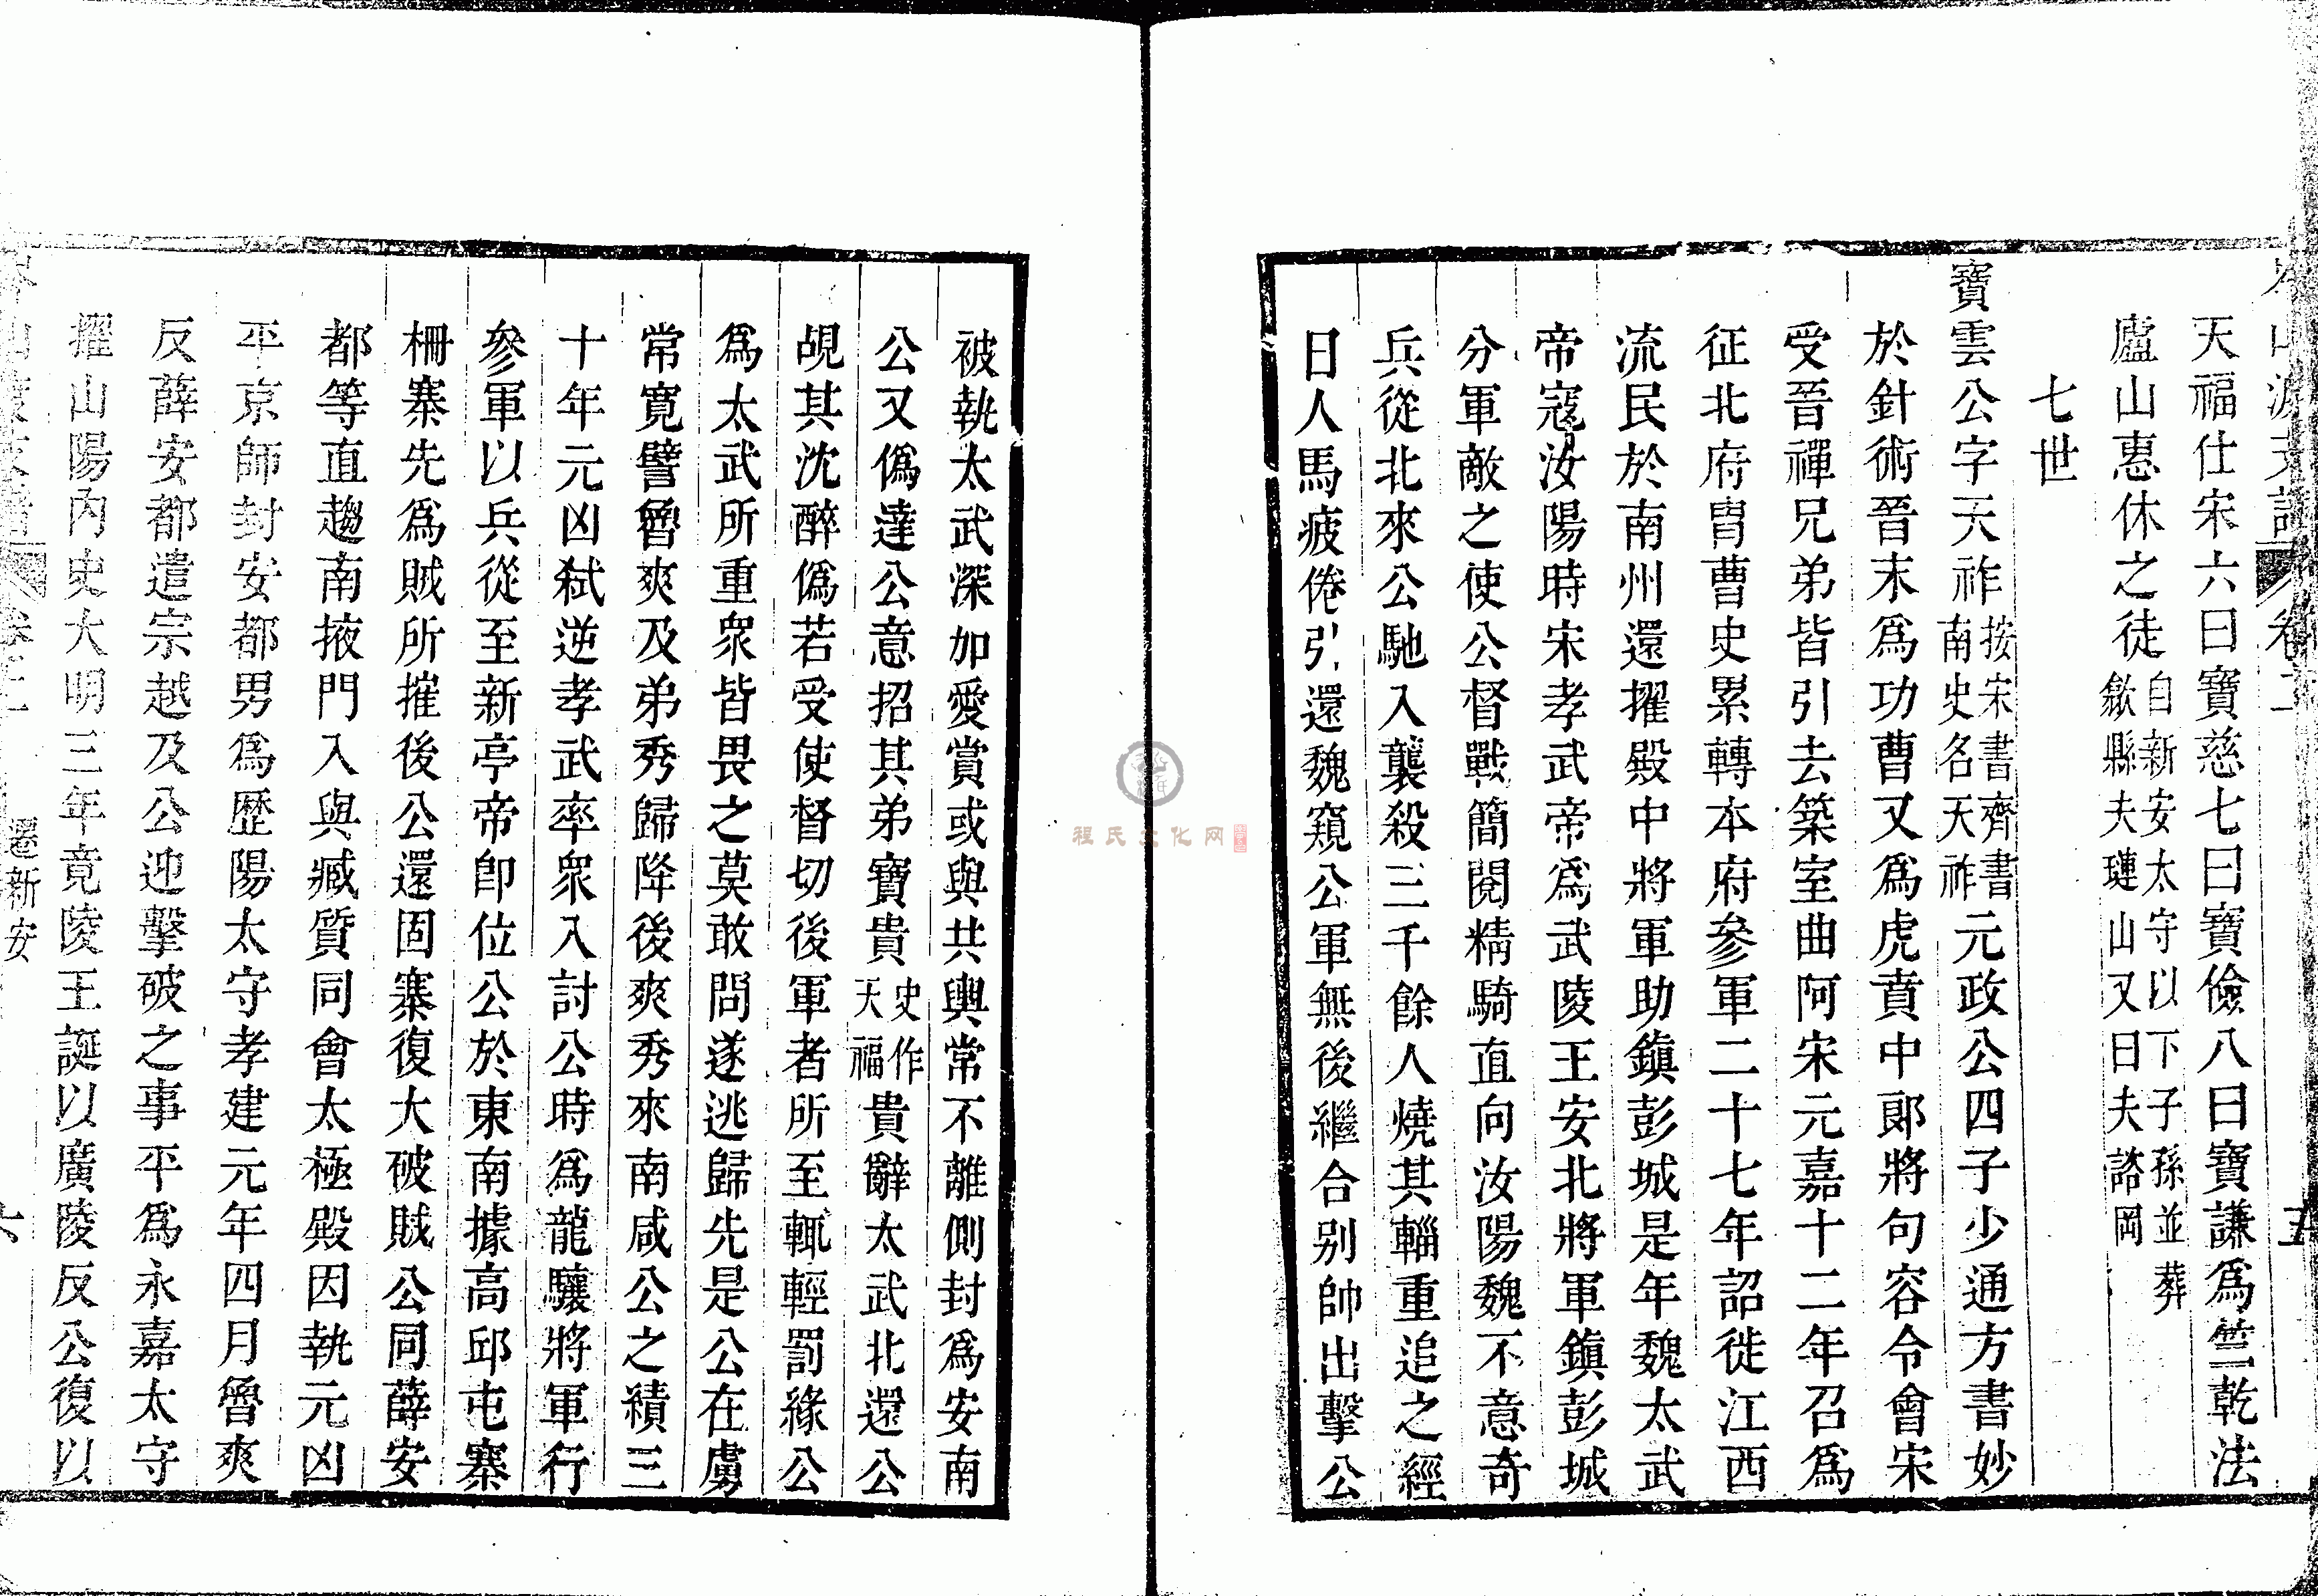 天福仕宋六曰寶慈七曰寶儉八曰寶謙爲竺乾法
廬山惠休之徒自新安太守以下子孫並葬歙縣夫璉山又曰夫諮岡
七世
寶雲公字天祚按宋書齊書南史名天祚元政公四子少通方書妙
於針術晉末爲功曹又爲虎賁中郎將句容令會宋
受晉禪兄弟皆引去築室曲阿宋元嘉十二年召爲
征北府胄曹史累轉本府參軍二十七年詔徙江西
流民於南州還擢殿中將軍助鎮彭城是年魏太武
帝寇汝陽時宋孝武帝爲武陵王安北將軍鎮彭城
分軍敵之使公督戰簡閱精騎直向汝陽魏不意奇
兵從北來公馳入襲殺三千餘人燒其輜重追之經
日人馬疲倦引還魏窺公軍無後繼合别帥出擊公
被執太武深加愛賞或與共輿常不離側封爲安南
公又僞達公意招其弟寶貴史作天福貴辭太武北還公
覘其沈醉僞若受使督切後軍者所至輒輕罰緣公
爲太武所重衆皆畏之莫敢問遂逃歸先是公在虜
常寬譬魯爽及弟秀歸降後爽秀來南咸公之績三
十年元凶弒逆孝武率衆入討公時爲龍驤將軍行
參軍以兵從至新亭帝卽位公於東南據高邱屯寨
柵寨先爲賊所摧後公還固寨復大破賊公同薛安
都等直趨南掖門入與臧質同會太極殿因執元凶
平京師封安都男爲歷陽太守孝建元年四月魯爽
反薛安都遣宗越及公迎擊破之事平爲永嘉太守
擢山陽內史大明三年竟陵王誕以廣陵反公復以
遷新安
六
程氏文化网